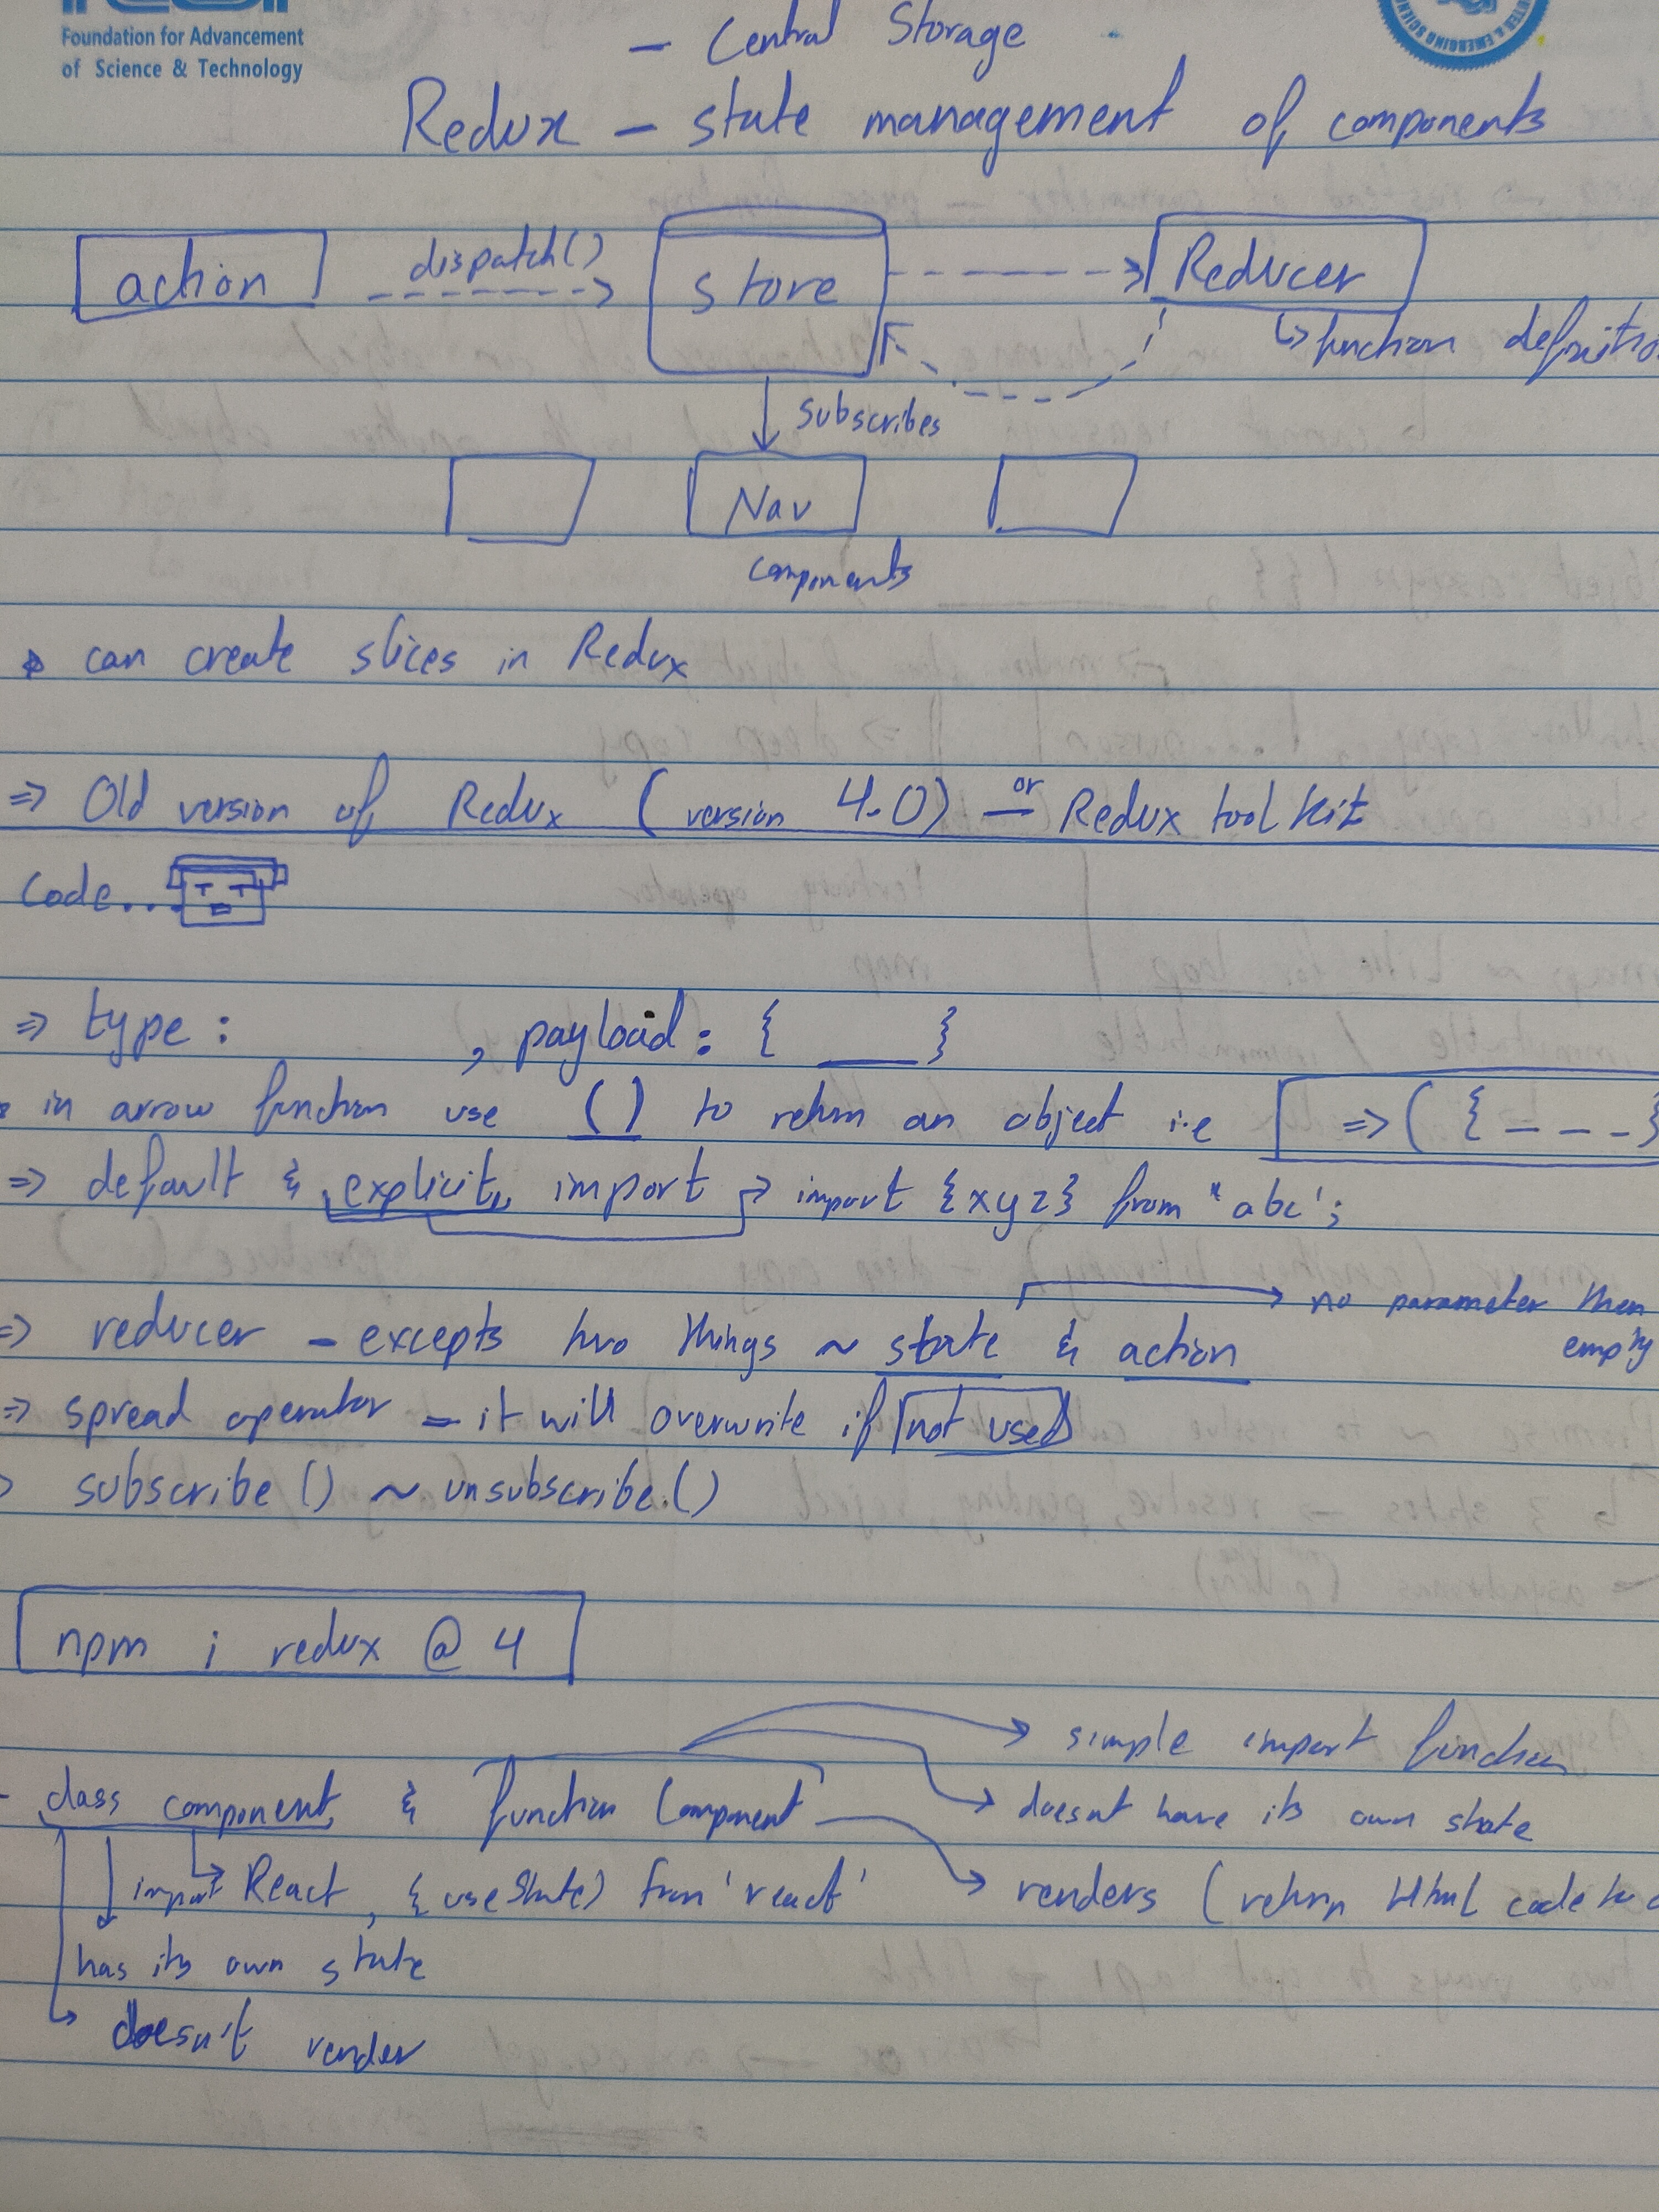 Foundation for Advancement
of Science & Technology
- Central Storage
Redux - state management of components
action
dispatch()
store
Reducer
↳ function definitio
subscribes
Nav
components
can create slices in Redux
⇒ Old version of Redux (version 4.0) or Redux toolkit
Code...
⇒ type : , payload : { ___ }
in arrow function use () to return an object i.e ⇒ ( { - - - }
⇒ default & explicit import → import {xyz} from "abc';
⇒ reducer - excepts two things ~ state & action → no parameter then
empty
⇒ spread operator - it will overwrite if not used
subscribe () ~ unsubscribe.()
npm i redux @ 4
simple import function
- class component & function Component
doesnt have its own state
import React, { useState) from 'react'
renders (return Html code
has its own state
doesn't render